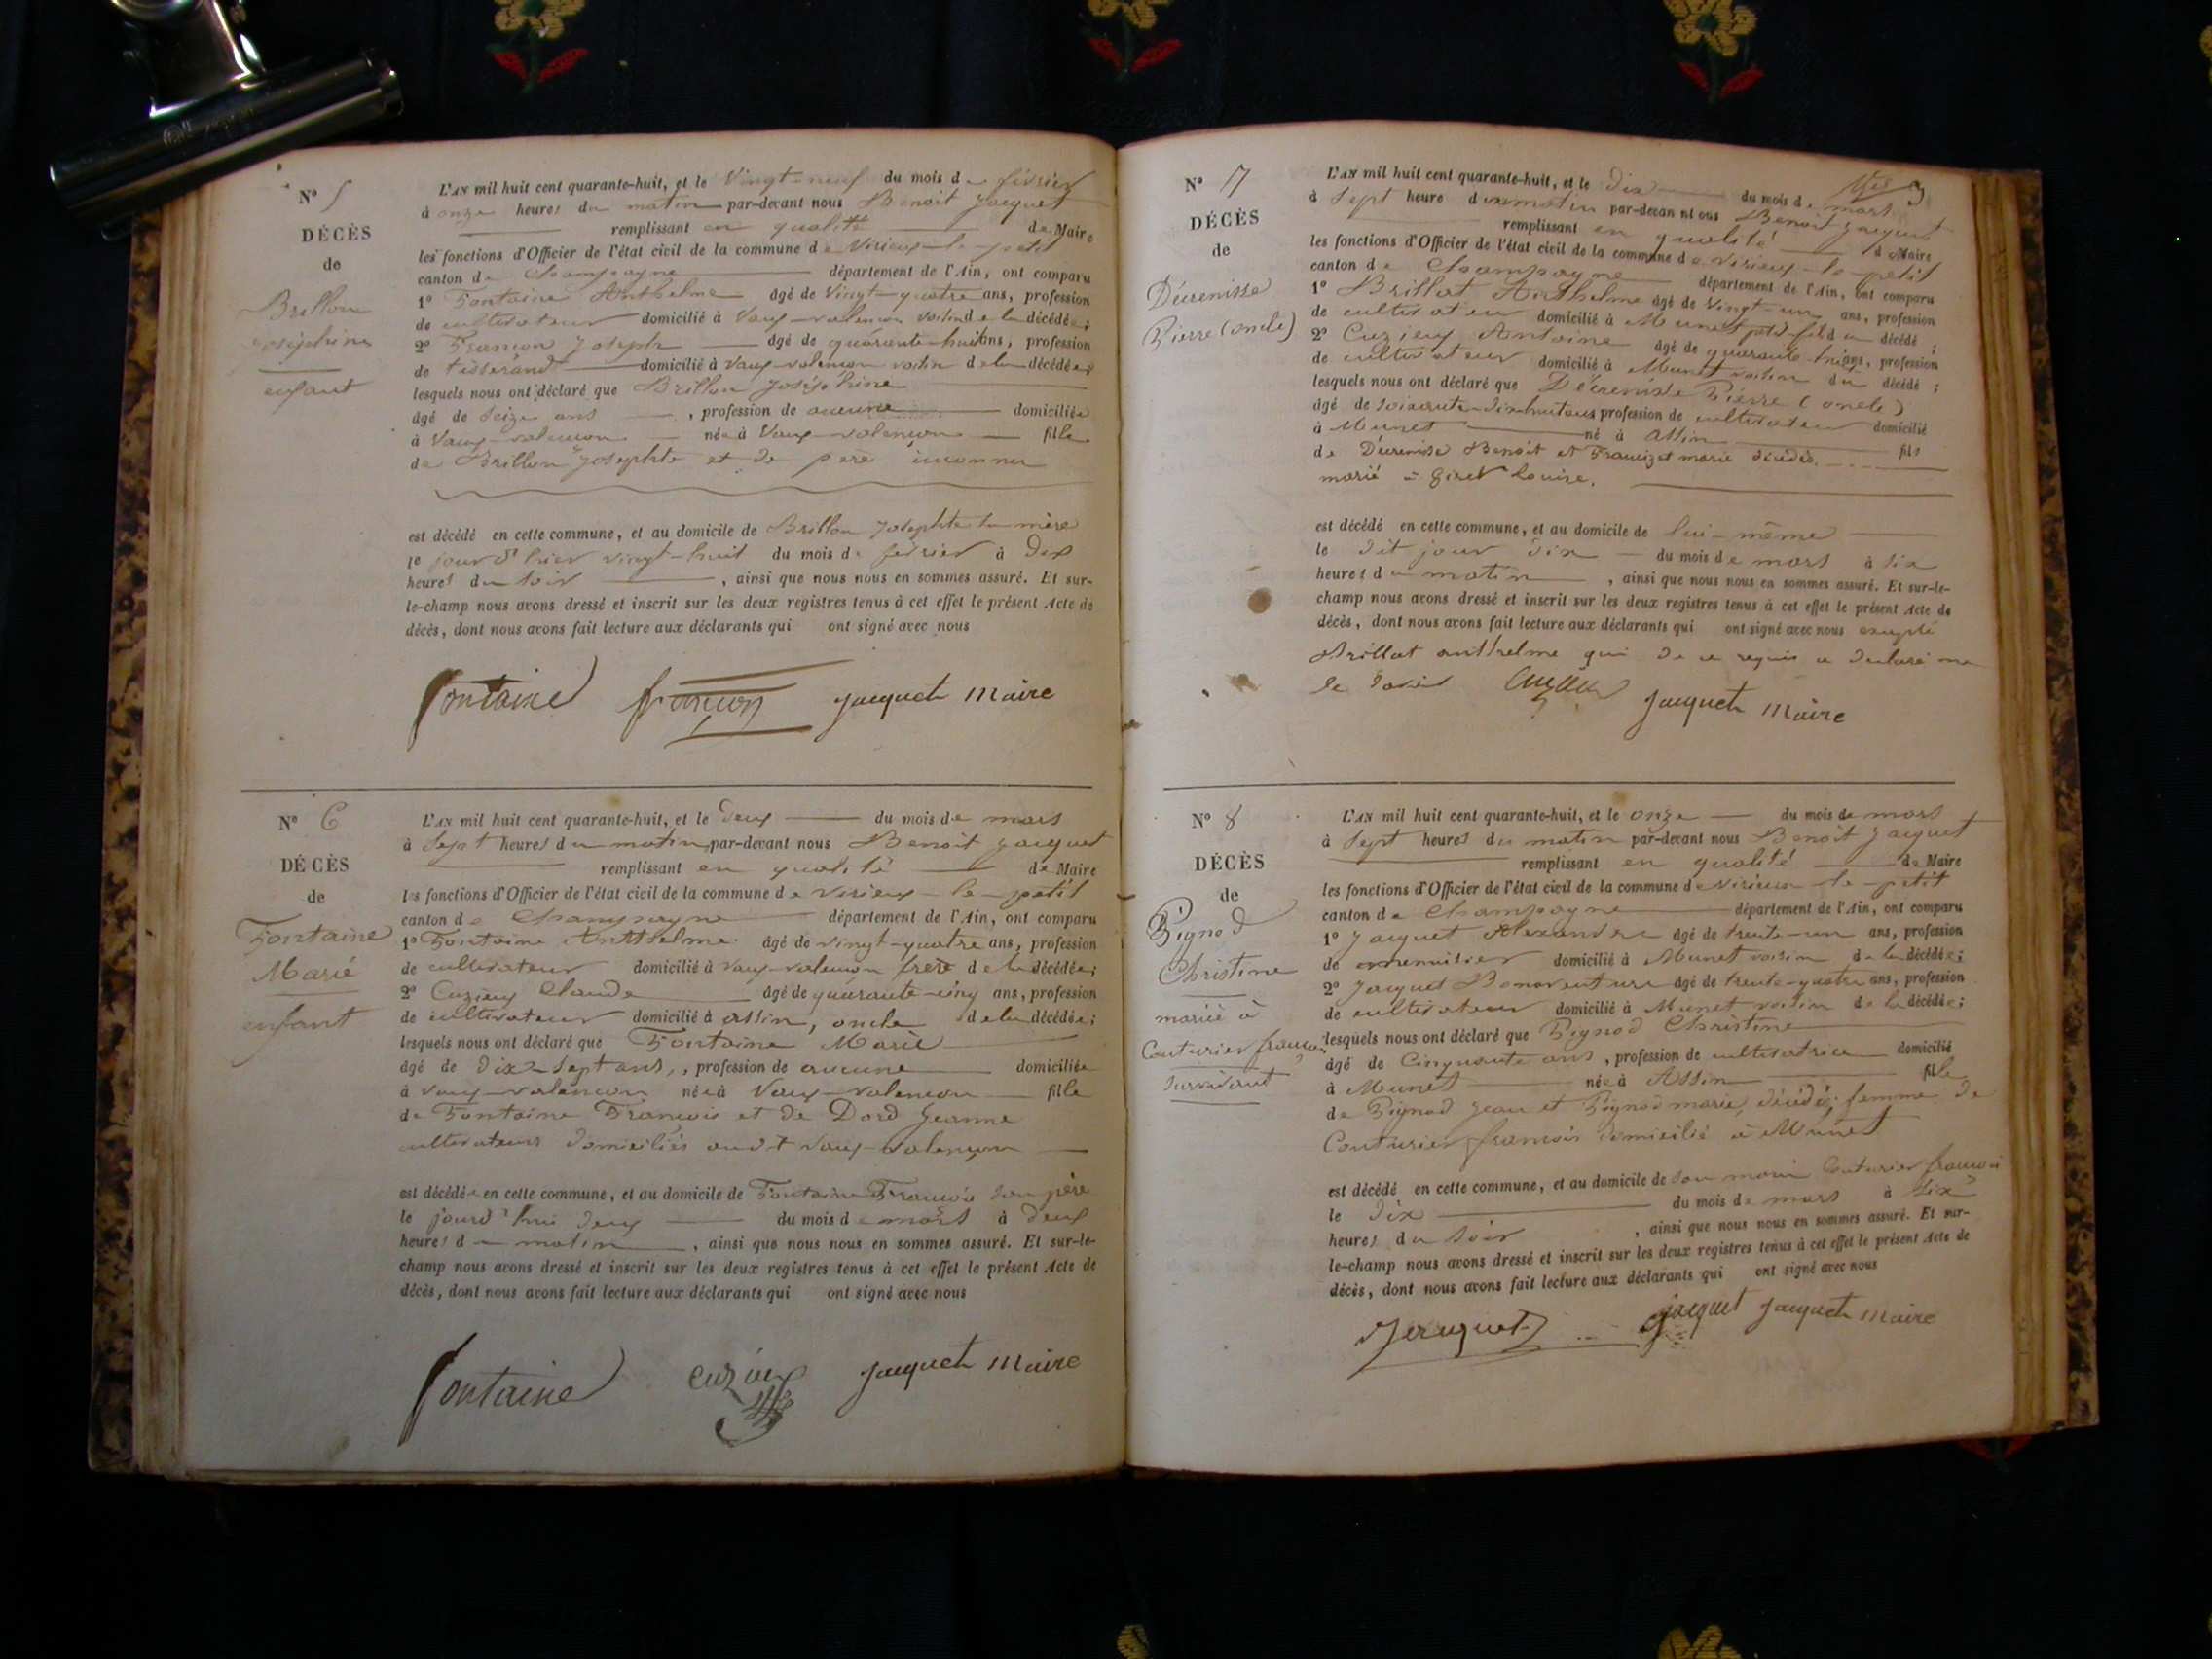 Nº 5
DÉCÈS
de
Brillon
Joséphine
enfant
L'AN mil huit cent quarante-huit, et le Vingt-neuf du mois de février
à onze heures du matin par-devant nous Benoit Jacquet
remplissant en qualité de Maire
les fonctions d'Officier de l'état civil de la commune de Virieux-le-petit
canton de Champagne département de l'Ain, ont comparu
1º Fontaine Anthelme âgé de Vingt-quatre ans, profession
de cultivateur domicilié à Vaux-valençon voisin de la décédée;
2º Françon Joseph âgé de quarante-huit ans, profession
de tisserand domicilié à Vaux-valençon voisin de la décédée;
lesquels nous ont déclaré que Brillon Joséphine
âgé de Seize ans , profession de aucune domiciliée
à Vaux-valençon née à Vaux-valençon fille
de Brillon Josephte et de père inconnu
est décédé en cette commune, et au domicile de Brillon Josephte sa mère
le jour d'hier vingt-huit du mois de février à Dix
heures du soir , ainsi que nous nous en sommes assuré. Et sur-
le-champ nous avons dressé et inscrit sur les deux registres tenus à cet effet le présent Acte de
décès, dont nous avons fait lecture aux déclarants qui ont signé avec nous
Fontaine françon Jacquet Maire
Nº 6
DÉCÈS
de
Fontaine
Marie
enfant
L'AN mil huit cent quarante-huit, et le Deux du mois de mars
à Sept heures du matin par-devant nous Benoit Jacquet
remplissant en qualité de Maire
les fonctions d'Officier de l'état civil de la commune de Virieux-le-petit
canton de Champagne département de l'Ain, ont comparu
1º Fontaine Anthelme âgé de vingt-quatre ans, profession
de cultivateur domicilié à Vaux-valençon frère de la décédée;
2º Cuzieux Claude âgé de quarante-cinq ans, profession
de cultivateur domicilié à Assin, oncle de la décédée;
lesquels nous ont déclaré que Fontaine Marie
âgé de Dix-Sept ans, , profession de aucune domiciliée
à Vaux-valençon née à Vaux-valençon fille
de Fontaine François et de Dord Jeanne
cultivateurs domiciliés audit Vaux-valençon
est décédée en cette commune, et au domicile de Fontaine François son père
le jourd'hui deux du mois de mars à deux
heures du matin , ainsi que nous nous en sommes assuré. Et sur-le-
champ nous avons dressé et inscrit sur les deux registres tenus à cet effet le présent Acte de
décès, dont nous avons fait lecture aux déclarants qui ont signé avec nous
Fontaine cuzieux Jacquet Maire
Nº 7
DÉCÈS
de
Décrenisse
Pierre (oncle)
L'AN mil huit cent quarante-huit, et le Dix du mois de mars
à Sept heure du matin par-devant nous Benoit Jacquet
remplissant en qualité de Maire
les fonctions d'Officier de l'état civil de la commune de Virieux-le-petit
canton de Champagne département de l'Ain, ont comparu
1º Brillat Anthelme âgé de Vingt-un ans, profession
de cultivateur domicilié à Munet petit fils du décédé;
2º Cuzieux Antoine âgé de quarante-trois ans, profession
de cultivateur domicilié à Munet voisin du décédé;
lesquels nous ont déclaré que Décrenisse Pierre (oncle)
âgé de soixante-dix-huit ans profession de cultivateur domicilié
à Munet né à Assin fils
de Décrenisse Benoit et Marie décédés
marié à Giret Louise.
est décédé en cette commune, et au domicile de lui-même
le dit jour Dix du mois de mars à six
heures du matin , ainsi que nous nous en sommes assuré. Et sur-le-
champ nous avons dressé et inscrit sur les deux registres tenus à cet effet le présent Acte de
décès, dont nous avons fait lecture aux déclarants qui ont signé avec nous excepté
Brillat anthelme qui de ce requis a déclaré ne
le savoir Jacquet Maire
Nº 8
DÉCÈS
de
Pignod
Christine
mariée à
Couturier françois
survivant
L'AN mil huit cent quarante-huit, et le onze du mois de mars
à Sept heures du matin par-devant nous Benoit Jacquet
remplissant en qualité de Maire
les fonctions d'Officier de l'état civil de la commune de Virieux-le-petit
canton de Champagne département de l'Ain, ont comparu
1º Jacquet Alexandre âgé de trente-un ans, profession
de menuisier domicilié à Munet voisin de la décédée;
2º Jacquet Bonaventure âgé de trente-quatre ans, profession
de cultivateur domicilié à Munet voisin de la décédée;
lesquels nous ont déclaré que Pignod Christine
âgé de Cinquante ans , profession de cultivatrice domicilié
à Munet née à Assin fille
de Pignod Jean et Pignod marie, décédés; femme de
Couturier françois domicilié à Munet
est décédé en cette commune, et au domicile de son mari Couturier françois
le Dix du mois de mars à Six
heures du soir , ainsi que nous nous en sommes assuré. Et sur-
le-champ nous avons dressé et inscrit sur les deux registres tenus à cet effet le présent Acte de
décès, dont nous avons fait lecture aux déclarants qui ont signé avec nous
Jacquet Jacquet Jacquet Maire